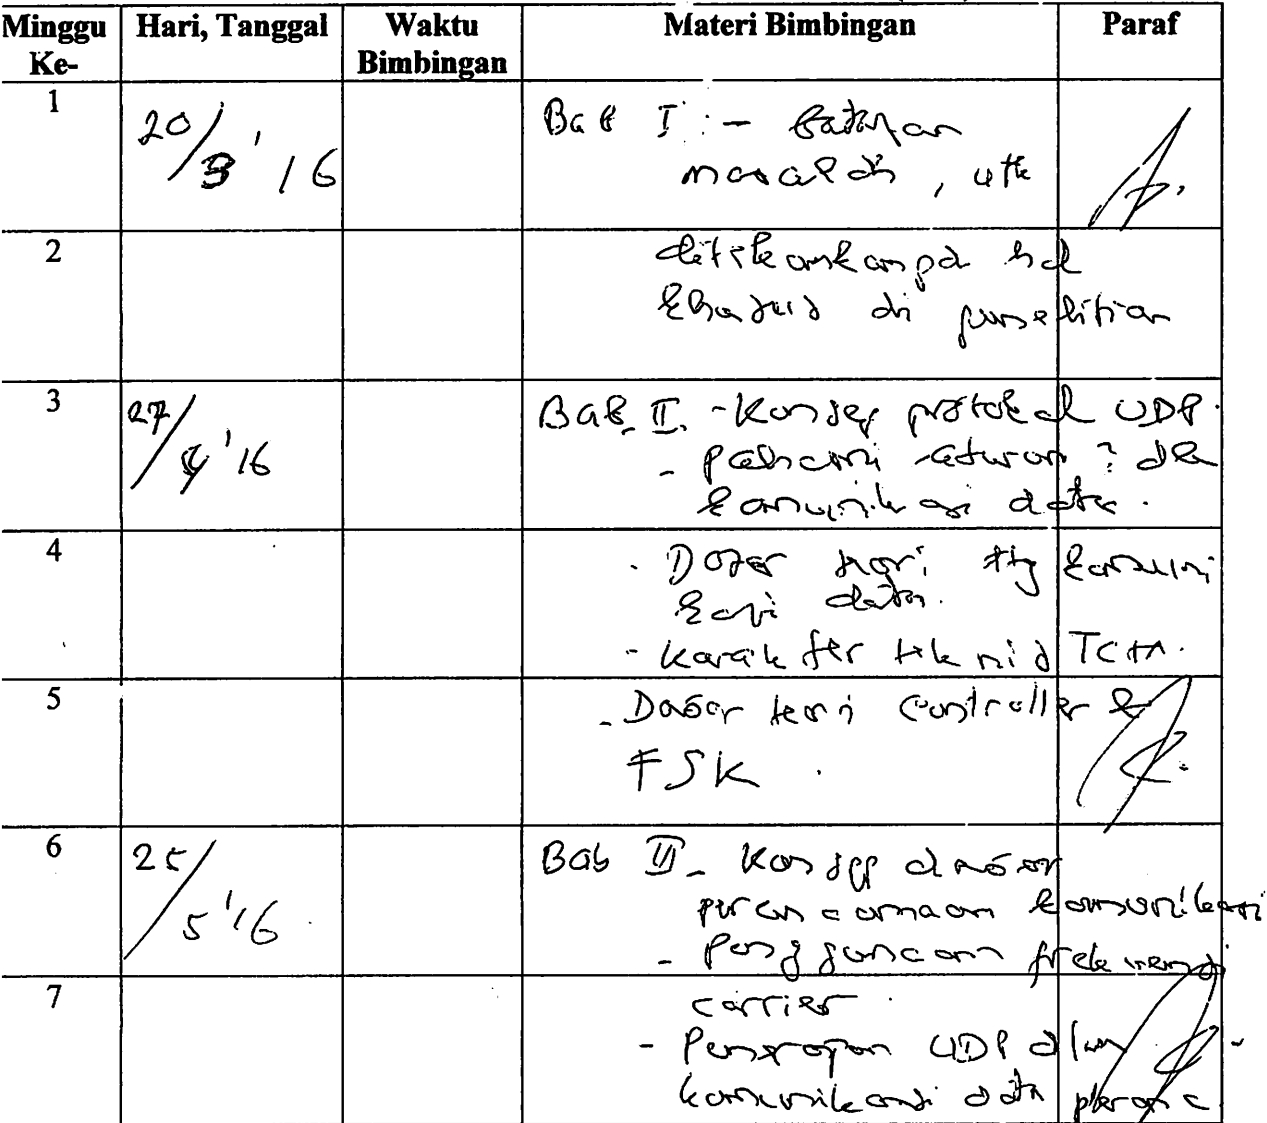 Minggu Ke- Hari, Tanggal Waktu Bimbingan Materi Bimbingan Paraf
1 20/3 '16 Bab I : - Batasan
masalah, utk
2 dititikankan pd hal
khusus di penelitian
3 27/4 '16 Bab II. - Konsep protokol UDP.
- pahami aturan² dlm
komunikasi data.
4 - Dasar teori ttg komuni
kasi data.
- Karakter teknis TCM.
5 - Dasar teori controller &
FSK.
6 25/5 '16 Bab III - Konsep dasar
perencanaan komunikasi
- Penggunaan frekuensi
7 carrier.
- Penerapan UDP dlm
komunikasi data